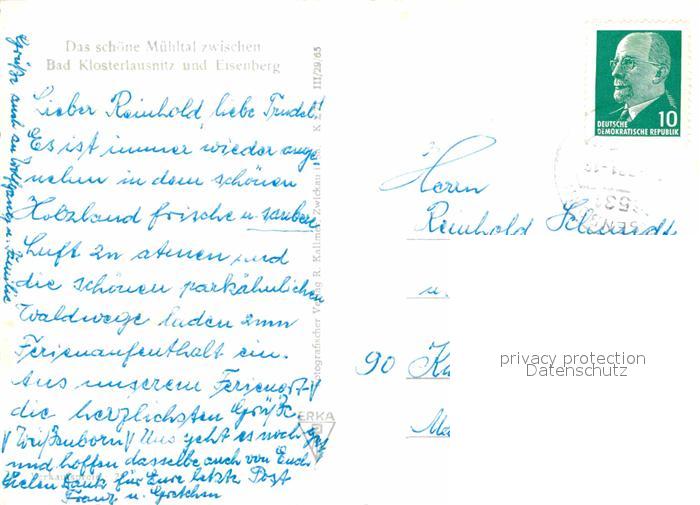 Das schöne Mühltal zwischen
Bad Klosterlausnitz und Eisenberg
III/29/65
Lieber Reinhold, liebe Trudel!
Es ist immer wieder ange-
nehm in dem schönen
Holzland frische u. saubere
Luft zu atmen und
die schönen parkähnlichen
Waldwege laden zum
Ferienaufenthalt ein.
Aus unserem Ferienort
die herzlichsten Grüße
Weißenborn Uns geht es noch gut
und hoffen dasselbe auch von Euch
Vielen Dank für Eure letzte Post
Franz u. Gretchen
Grüße auch an Wolfgang u. Familie
Verlag R. Kallmer, Zwickau
ERKA
DEUTSCHE
DEMOKRATISCHE REPUBLIK
10
Herrn
Reinhold Schmidt
u.
90 Ka
Ma
privacy protection
Datenschutz